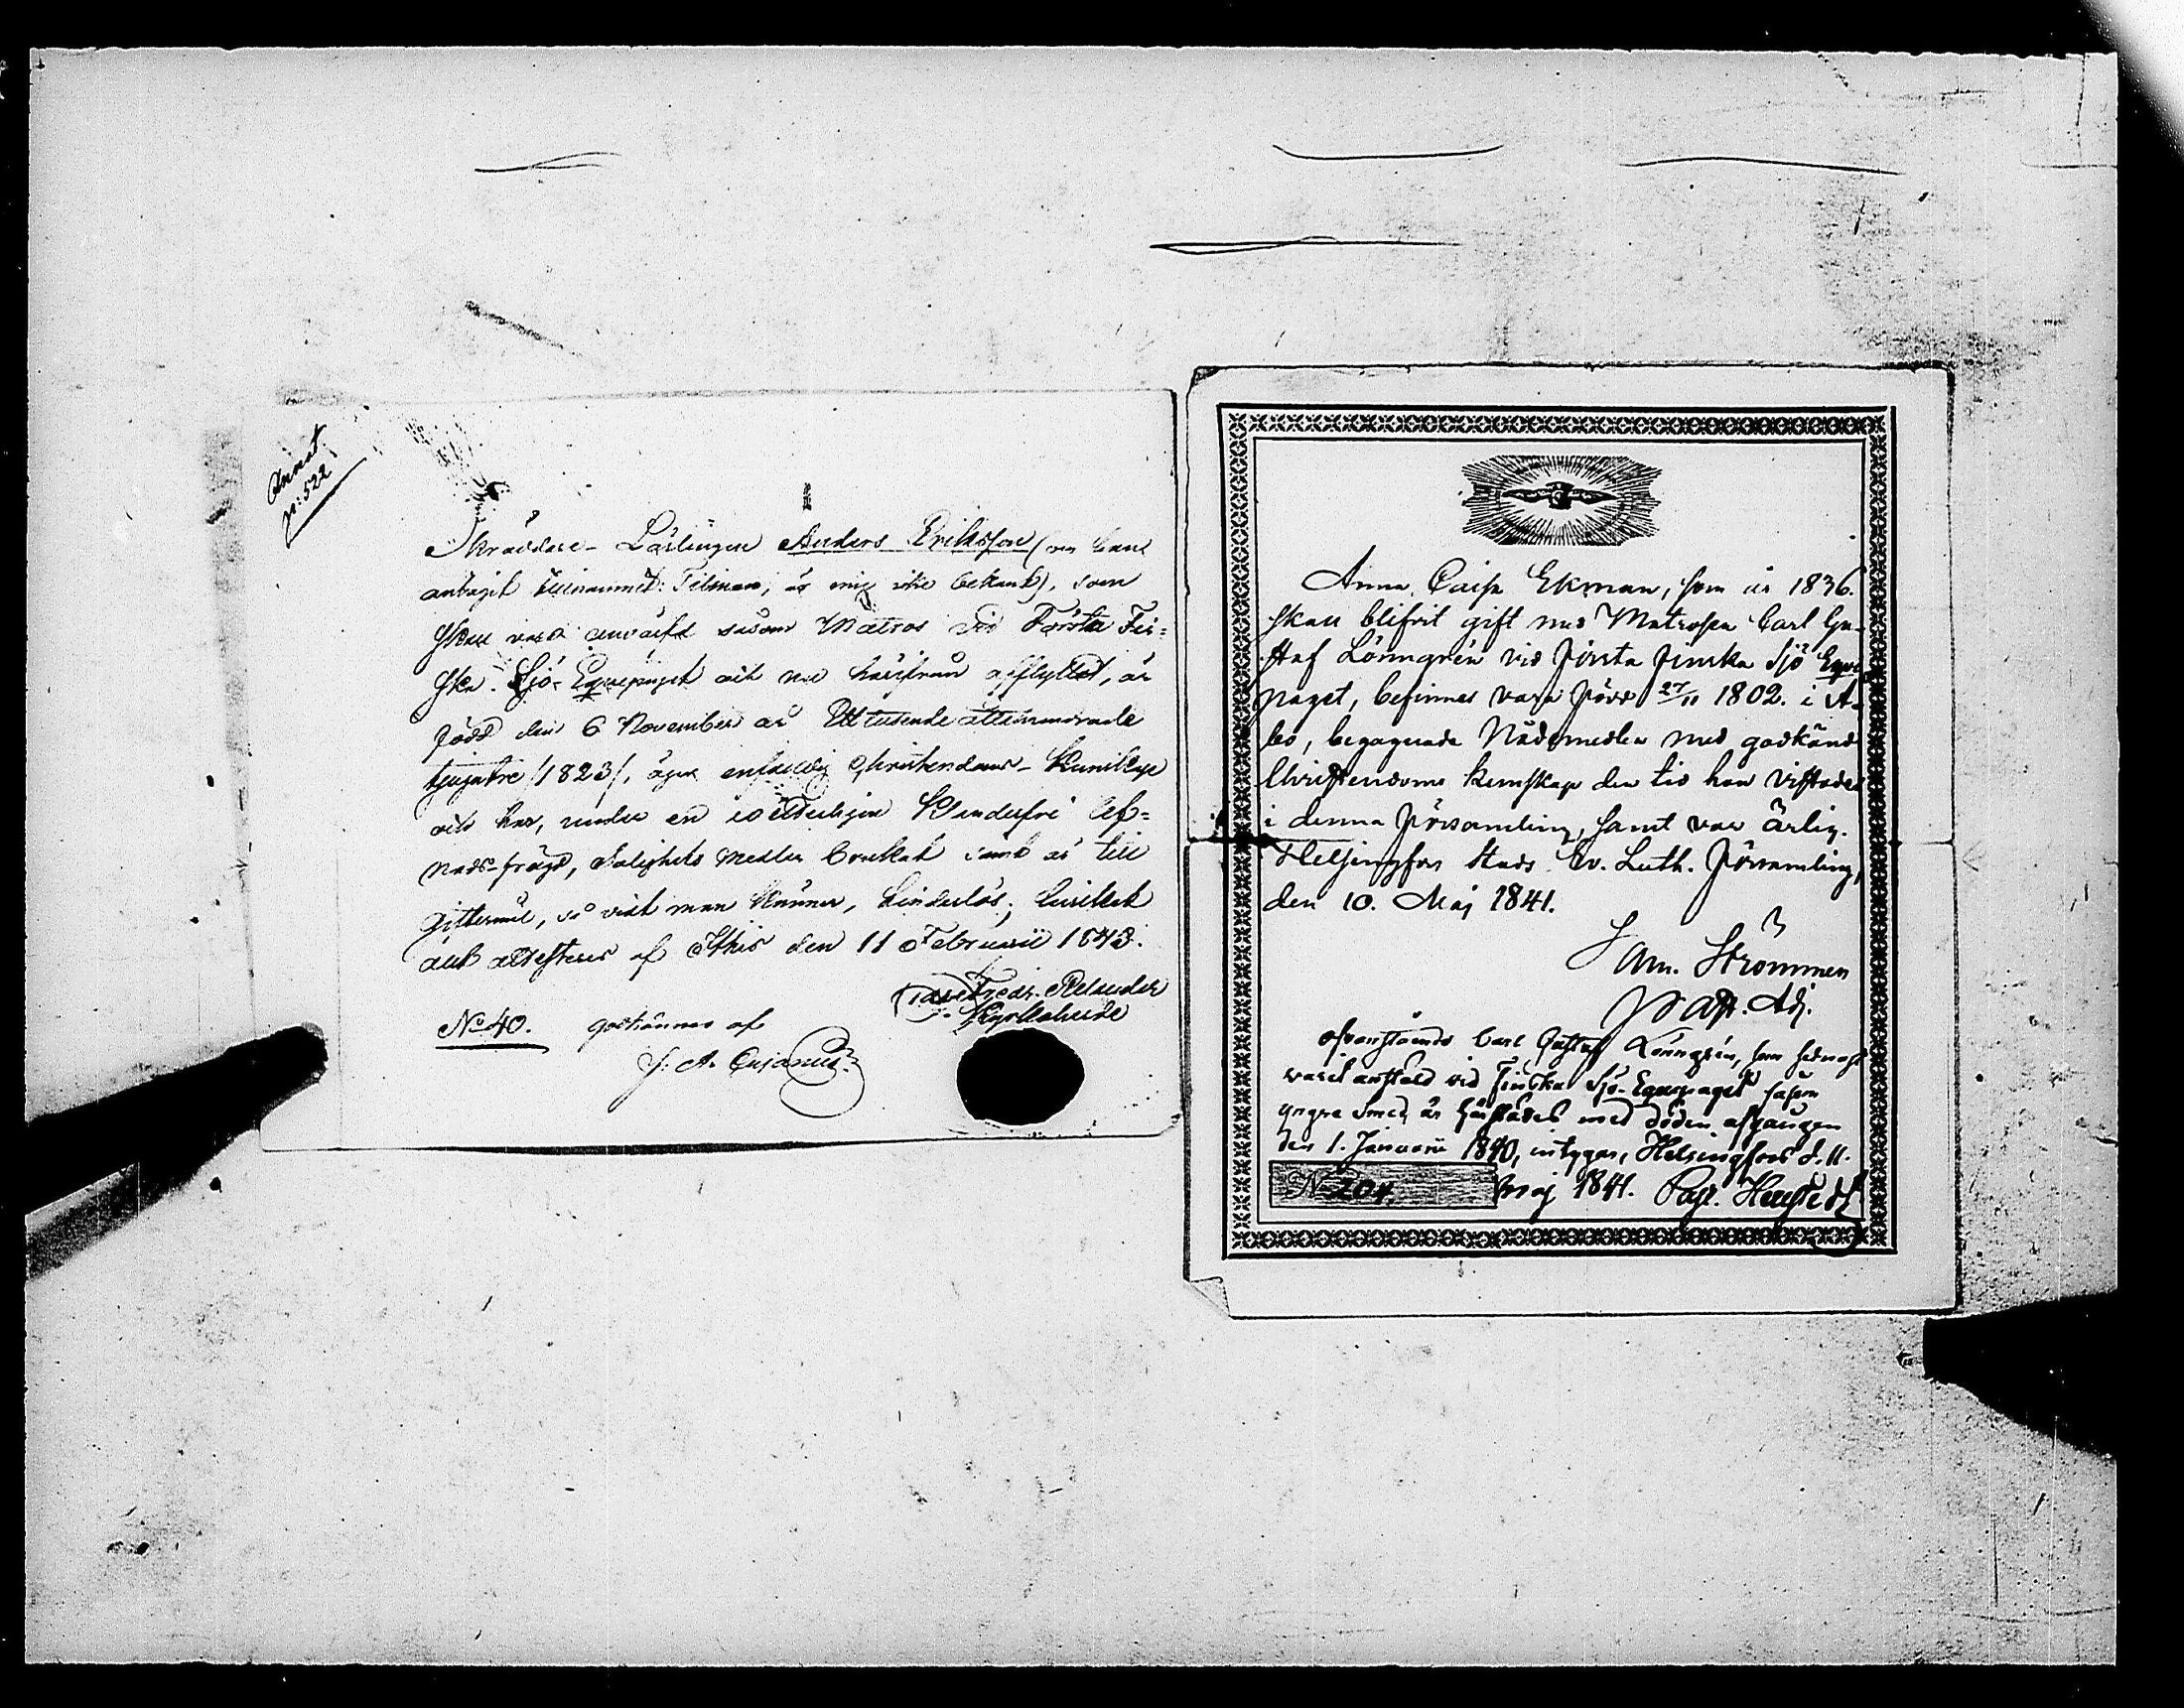 Annot
N: 522
Skräddare-Lärlingen Anders Eriksson (om han
antagit tillnamnet: Tilman, är mig icke bekant), som
skall vara anväfd såsom Matros vid Första Fin-
ska Sjö-Equipaget och nu härifrån afflyttat, är
född den 6 November år Ett tusende åttahundrade
tjugutre /1823/, äger enfaldig Christendoms-Kunskap
och har, under en oklanderlig lef-
nads-frägd, Salighets Medlen brukat samt är till
giftermål, så vidt man känner, hinderlös; hvilket
attesteras af Sthis den 11 Februarii 1843.
Fredr. Relander
Kyrkoherde
No 40. godkännes af
J. A. Cajanus
Anna Caisa Ekman, som år 1836.
skall blifvit gift med Matrosen Carl Gu-
staf Lönngrén vid Första Finska Sjö Equi
paget, befinnes vara född 27/11 1802. i Å-
bo, begagnade Nådemedlen med godkänd
Christendoms kunskap den tid hon vistades
i denna församling, samt var ärlig.
Helsingfors Stads Ev. Luth. församling,
den 10. Maj 1841.
Sam. Strömmen
Past. Adj.
Ofvanstående Carl Gustaf Lönngrén, som sednast
varit anstäld vid Finska Sjö-Equipaget såsom
yngre Smed är härstädes med döden afgången
den 1. Januarii 1840, intygar, Helsingfors d. 11.
No 204. Maj 1841.